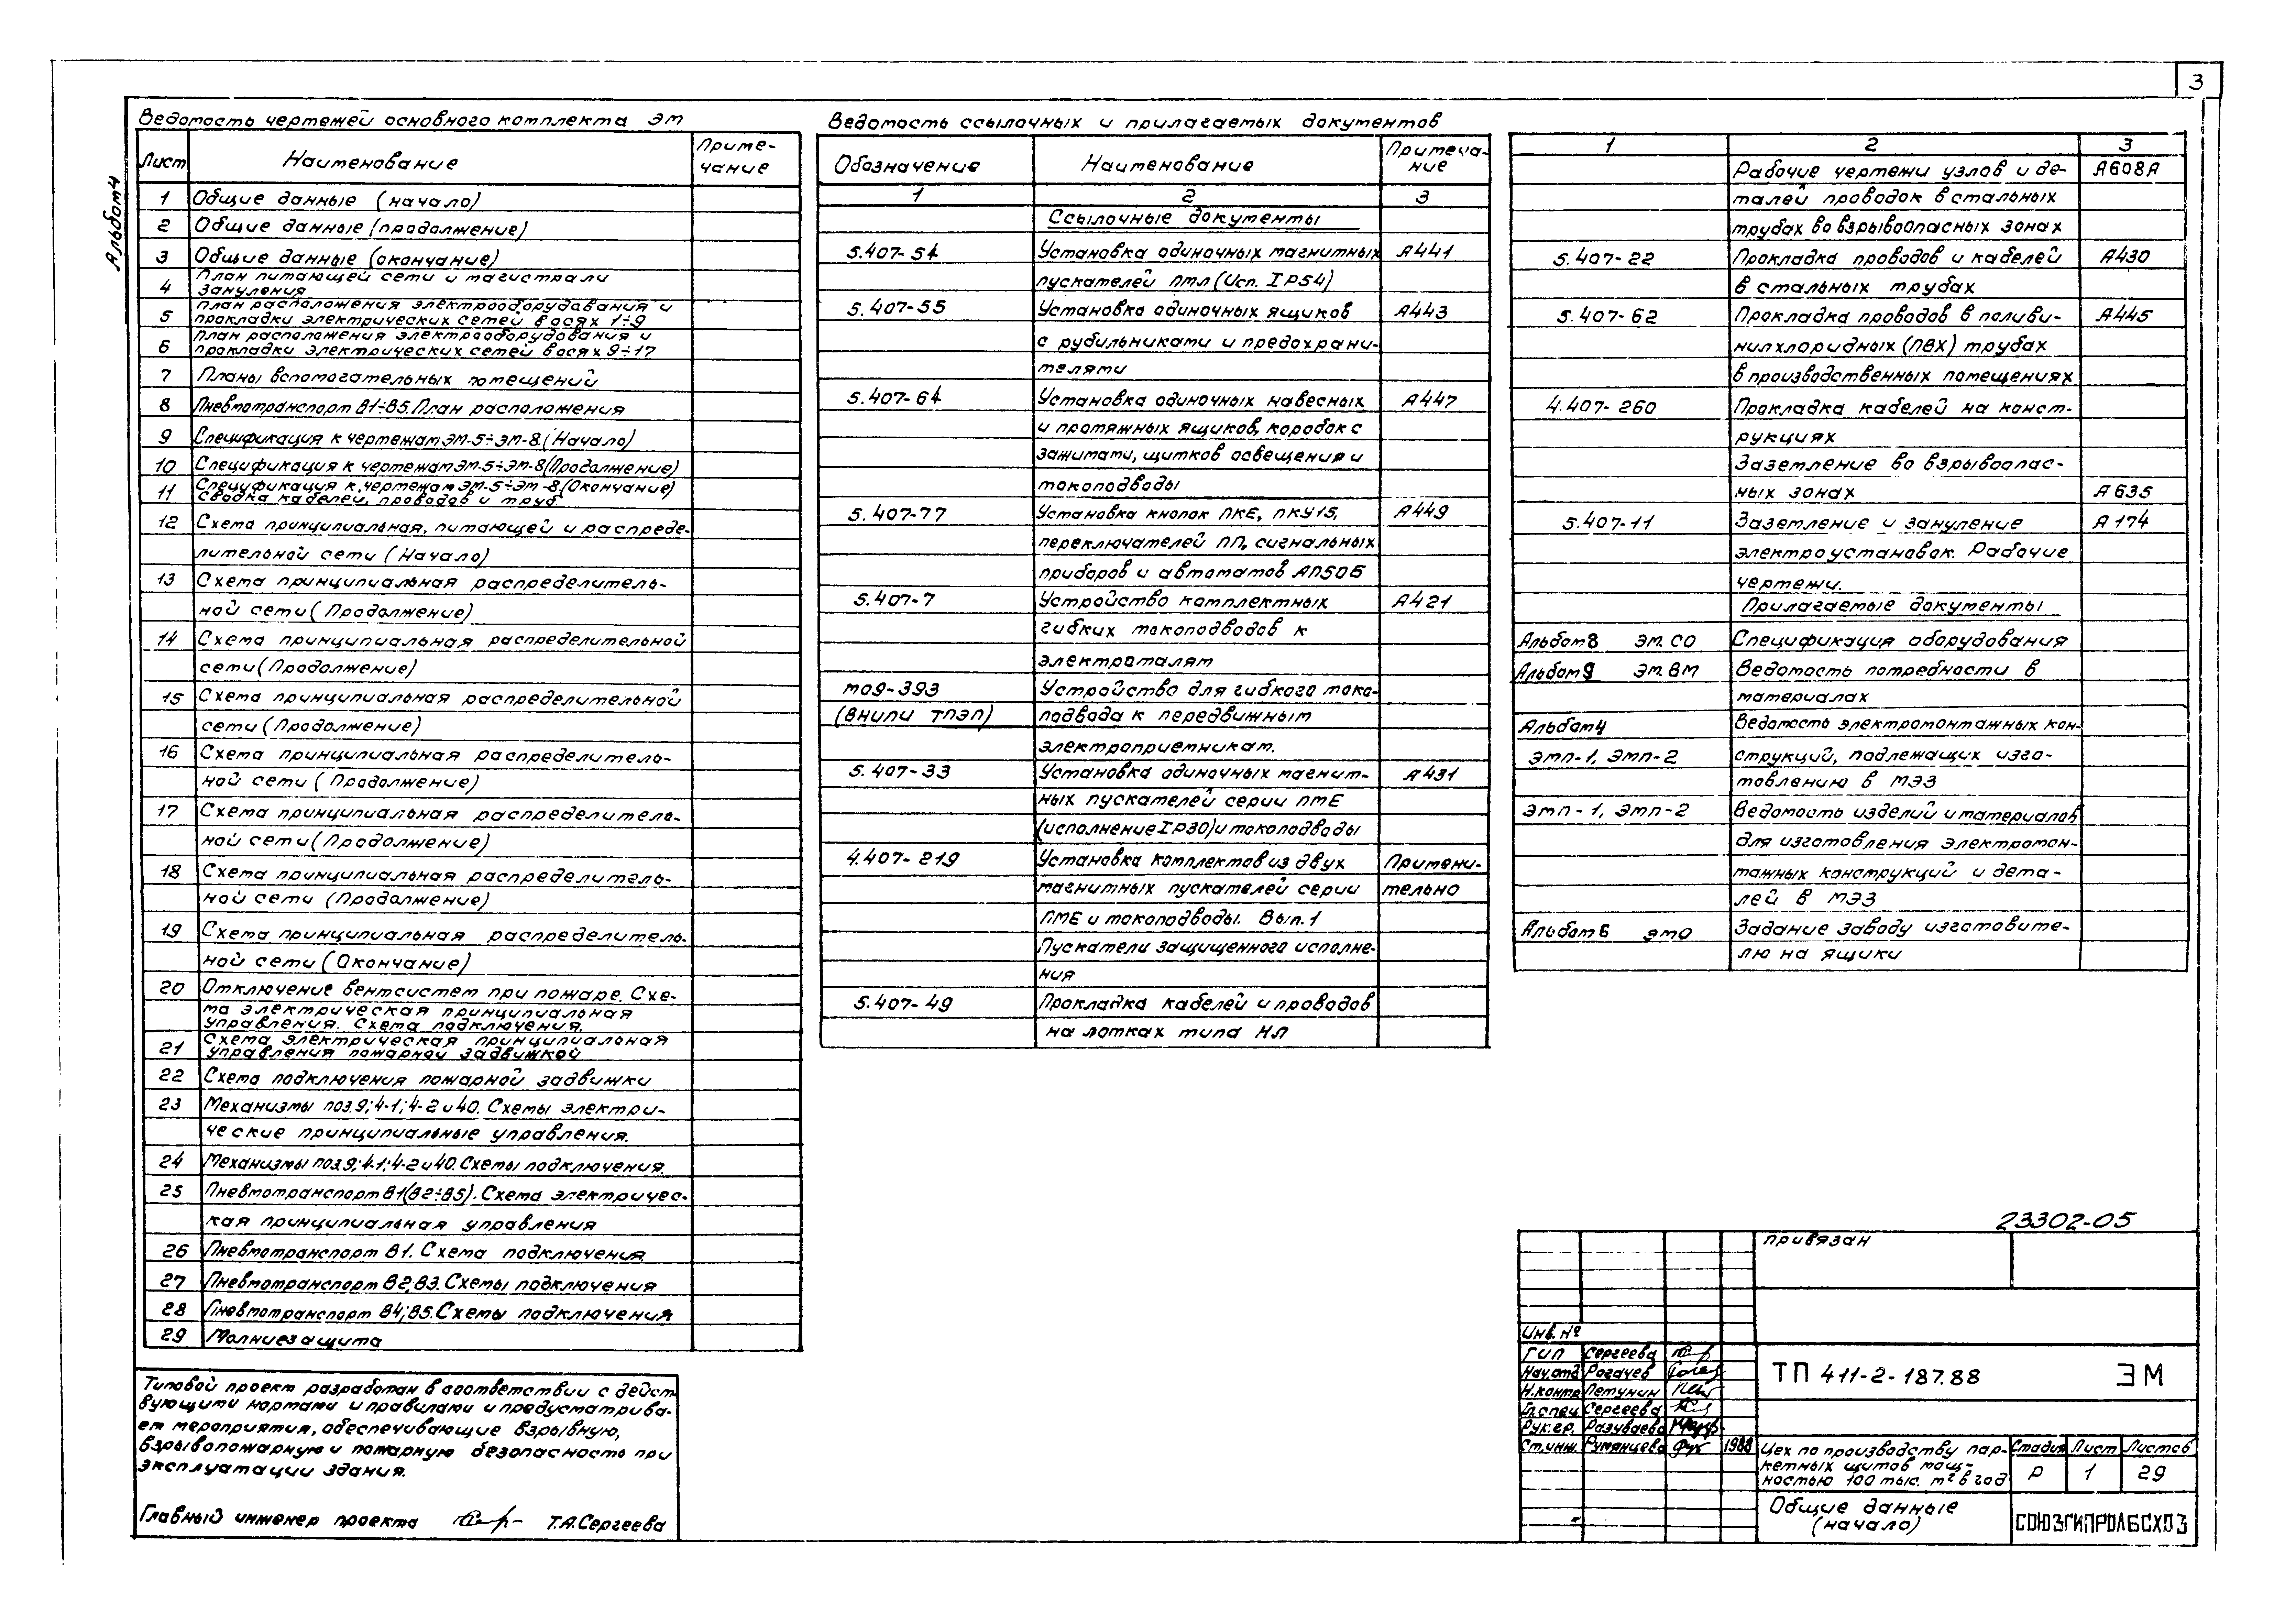 3
Альбом 4
Ведомость чертежей основного комплекта ЭМ
Лист Наименование Приме-
чание
1 Общие данные (начало)
2 Общие данные (продолжение)
3 Общие данные (окончание)
4 План питающей сети и магистрали
зануления
5 План расположения электрооборудования и
прокладки электрических сетей в осях 1÷9
6 План расположения электрооборудования и
прокладки электрических сетей в осях 9÷17
7 Планы вспомогательных помещений
8 Пневмотранспорт В1÷В5. План расположения
9 Спецификация к чертежам ЭМ-5÷ЭМ-8 (Начало)
10 Спецификация к чертежам ЭМ-5÷ЭМ-8 (Продолжение)
11 Спецификация к чертежам ЭМ-5÷ЭМ-8 (Окончание)
Сводка кабелей, проводов и труб.
12 Схема принципиальная, питающей и распреде-
лительной сети (Начало)
13 Схема принципиальная распределитель-
ной сети (Продолжение)
14 Схема принципиальная распределительной
сети (Продолжение)
15 Схема принципиальная распределительной
сети (Продолжение)
16 Схема принципиальная распределитель-
ной сети (Продолжение)
17 Схема принципиальная распределитель-
ной сети (Продолжение)
18 Схема принципиальная распределитель-
ной сети (Продолжение)
19 Схема принципиальная распределитель-
ной сети (Окончание)
20 Отключение вентсистем при пожаре. Схе-
ма электрическая принципиальная
управления. Схема подключения.
21 Схема электрическая принципиальная
управления пожарной задвижкой
22 Схема подключения пожарной задвижки
23 Механизмы поз.9; 4-1; 4-2 и 40. Схемы электри-
ческие принципиальные управления.
24 Механизмы поз.9; 4-1; 4-2 и 40. Схемы подключения.
25 Пневмотранспорт В1(В2÷В5). Схема электричес-
кая принципиальная управления
26 Пневмотранспорт В1. Схема подключения
27 Пневмотранспорт В2; В3. Схемы подключения
28 Пневмотранспорт В4; В5. Схемы подключения
29 Молниезащита
Типовой проект разработан в соответствии с дейст
вующими нормами и правилами и предусматрива-
ет мероприятия, обеспечивающие взрывную,
взрывопожарную и пожарную безопасность при
эксплуатации здания.
Главный инженер проекта Т.А.Сергеева
Ведомость ссылочных и прилагаемых документов
Обозначение Наименование Примеча-
ние
1 2 3
Ссылочные документы
5.407-54 Установка одиночных магнитных А441
пускателей ПМЛ (Исп. IP54)
5.407-55 Установка одиночных ящиков А443
с рубильниками и предохрани-
телями
5.407-64 Установка одиночных навесных А447
и протяжных ящиков, коробок с
зажимами, щитков освещения и
токоподводы
5.407-77 Установка кнопок ПКЕ, ПКУ15, А449
переключателей ПП, сигнальных
приборов и автоматов АП50Б
5.407-7 Устройство комплектных А421
гибких токоподводов к
электроталям
то9-393 Устройство для гибкого токо-
(ВНИПИ ТПЭП) подвода к передвижным
электроприемникам.
5.407-33 Установка одиночных магнит- А431
ных пускателей серии ПМЕ
(исполнение IP30) и токоподводы
4.407-219 Установка комплектов из двух Примени-
магнитных пускателей серии тельно
ПМЕ и токоподводы. Вып.1
Пускатели защищенного исполне-
ния
5.407-49 Прокладка кабелей и проводов
на лотках типа НЛ
1 2 3
Рабочие чертежи узлов и де- А608А
талей проводок в стальных
трубах во взрывоопасных зонах
5.407-22 Прокладка проводов и кабелей А430
в стальных трубах
5.407-62 Прокладка проводов в поливи- А445
нилхлоридных (ПВХ) трубах
в производственных помещениях
4.407-260 Прокладка кабелей на конст-
рукциях
Заземление во взрывоопас-
ных зонах А635
5.407-11 Заземление и зануление А174
электроустановок. Рабочие
чертежи.
Прилагаемые документы
Альбом 8 ЭМ.СО Спецификация оборудования
Альбом 9 ЭМ.ВМ Ведомость потребности в
материалах
Альбом 4 Ведомость электромонтажных кон-
ЭМП-1, ЭМП-2 струкций, подлежащих изго-
товлению в МЭЗ
ЭМП-1, ЭМП-2 Ведомость изделий и материалов
для изготовления электромон-
тажных конструкций и дета-
лей в МЭЗ
Альбом 6 ЭМО Задание заводу изготовите-
лю на ящики
23302-05
привязан
Инв. №
ГИП Сергеева
Нач.отд Рогачев
Н.контр Петунин
Гл.спец Сергеева
Рук.гр. Разуваева
Ст.инж. Румянцева 1988
ТП 411-2-187.88 ЭМ
Цех по производству пар-
кетных щитов мощ-
ностью 100 тыс. м² в год
Стадия Лист Листов
Р 1 29
Общие данные
(начало)
СОЮЗГИПРОЛЕСХОЗ